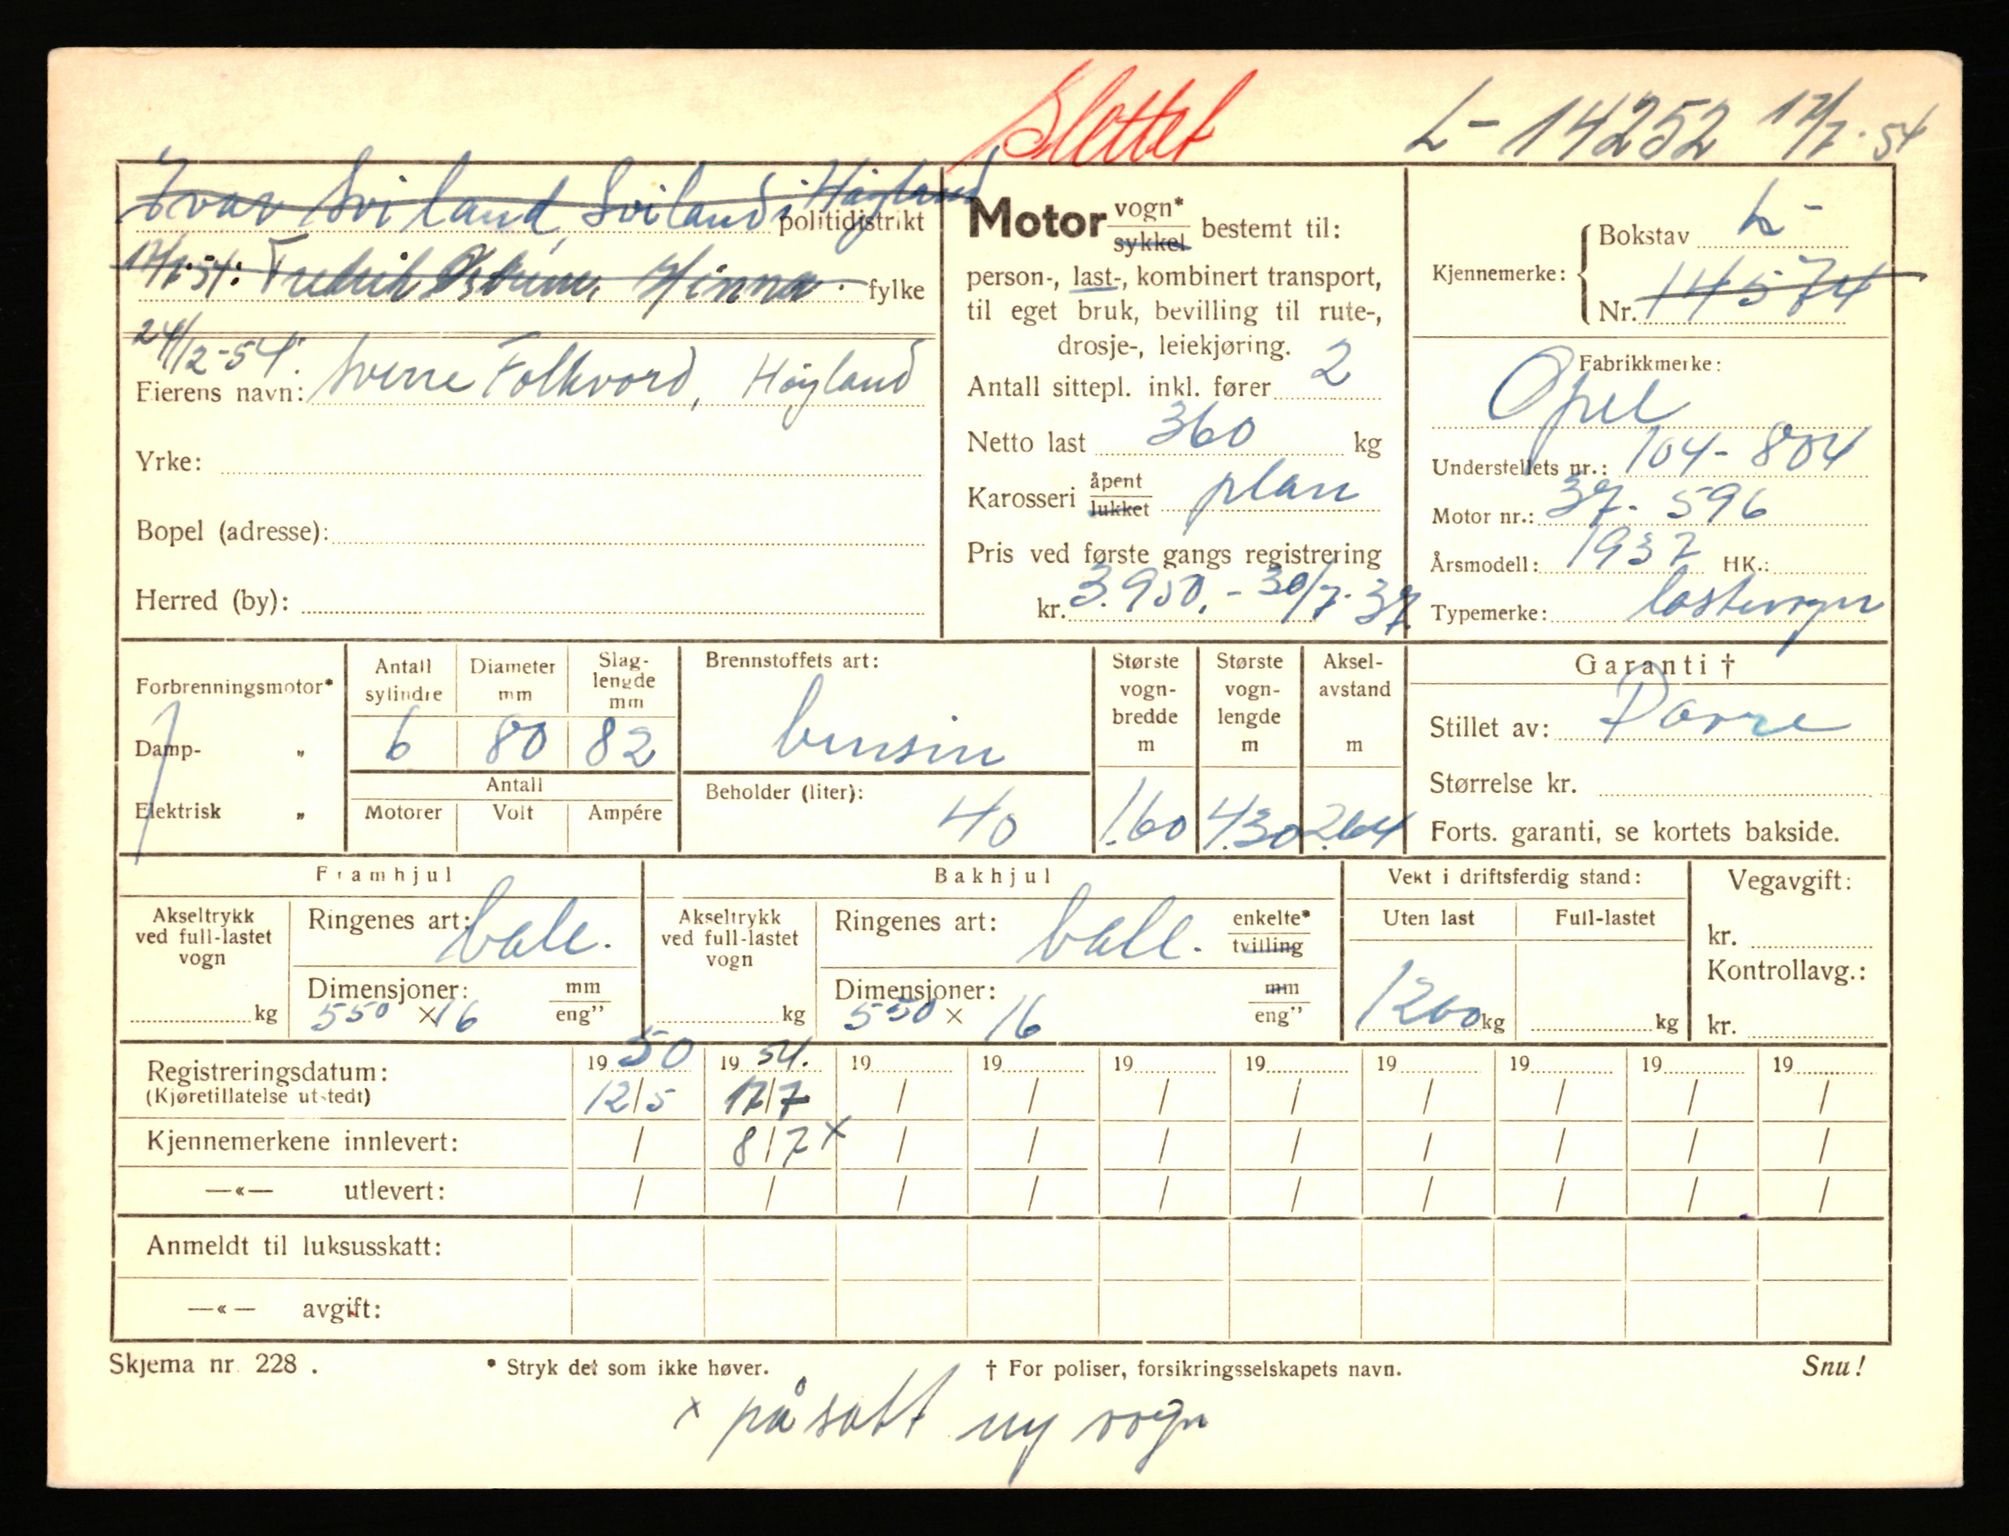 Slettet L- 14252 17/7-54
Ivar Sviland, Sviland i Høyland politidistrikt
17/7-54: Fredrik Hinna. fylke
24/12-54.
Eierens navn: Sverre Folkvord, Høyland
Yrke:
Bopel (adresse):
Herred (by):
Motor vogn* sykkel bestemt til:
person-, last-, kombinert transport,
til eget bruk, bevilling til rute-,
drosje-, leiekjøring.
Antall sittepl. inkl. fører 2
Netto last 360 kg
Karosseri åpent lukket plan
Pris ved første gangs registrering
kr. 3.950.- 30/7-37.
Kjennemerke: Bokstav L-
Nr. 14574
Fabrikkmerke:
Opel
Understellets nr.: 104-804
Motor nr.: 37-596
Årsmodell: 1937 HK.:
Typemerke: lastevogn
Forbrenningsmotor*
Damp- „
Elektrisk „
Antall sylindre Diameter mm Slag-lengde mm
6 80 82
Antall
Motorer Volt Ampére
Brennstoffets art:
bensin
Beholder (liter):
40
Største vogn-bredde m Største vogn-lengde m Aksel-avstand m
1.60 4.30 2.64
Garanti †
Stillet av: Dovre
Størrelse kr.
Forts. garanti, se kortets bakside.
Framhjul
Akseltrykk ved full-lastet vogn kg
Ringenes art: ball.
Dimensjoner: mm eng"
550 × 16
Bakhjul
Akseltrykk ved full-lastet vogn kg
Ringenes art: ball. enkelte* tvilling
Dimensjoner: mm eng"
550 × 16
Vekt i driftsferdig stand:
Uten last Full-lastet
1200 kg kg
Vegavgift:
kr.
Kontrollavg.:
kr.
Registreringsdatum: 19 50 19 54. 19 19 19 19 19 19 19 19
(Kjøretillatelse utstedt) 12/5 17/7 / / / / / / / /
Kjennemerkene innlevert: / 8/7 x / / / / / / / /
—«— utlevert: / / / / / / / / / /
Anmeldt til luksusskatt:
—«— avgift:
Skjema nr. 228. * Stryk det som ikke høver. † For poliser, forsikringsselskapets navn. Snu!
x påsatt ny vogn